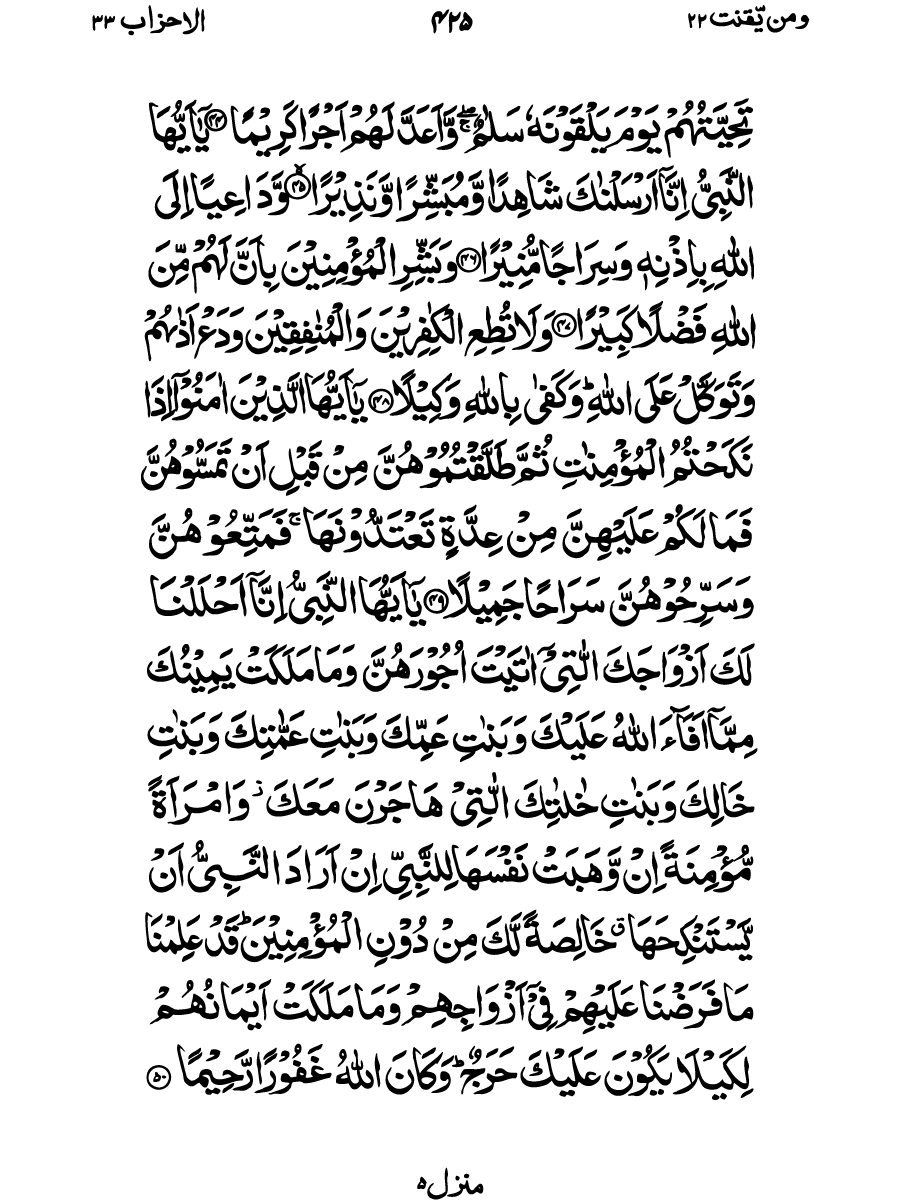 ومن یّقنت ۲۲ ۴۲۵ الاحزاب ۳۳
تَحِیَّتُهُمْ یَوْمَ یَلْقَوْنَهٗ سَلٰمٌ ۖۚ وَّاَعَدَّ لَهُمْ اَجْرًا كَرِیْمًا ﴿۴۴﴾ یٰۤاَیُّهَا
النَّبِیُّ اِنَّاۤ اَرْسَلْنٰكَ شَاهِدًا وَّمُبَشِّرًا وَّنَذِیْرًا ﴿ۙ۴۵﴾ وَّدَاعِیًا اِلَی
اللّٰهِ بِاِذْنِهٖ وَسِرَاجًا مُّنِیْرًا ﴿۴۶﴾ وَبَشِّرِ الْمُؤْمِنِیْنَ بِاَنَّ لَهُمْ مِّنَ
اللّٰهِ فَضْلًا كَبِیْرًا ﴿۴۷﴾ وَلَا تُطِعِ الْكٰفِرِیْنَ وَالْمُنٰفِقِیْنَ وَدَعْ اَذٰىهُمْ
وَتَوَكَّلْ عَلَی اللّٰهِ ؕ وَكَفٰی بِاللّٰهِ وَكِیْلًا ﴿۴۸﴾ یٰۤاَیُّهَا الَّذِیْنَ اٰمَنُوْۤا اِذَا
نَكَحْتُمُ الْمُؤْمِنٰتِ ثُمَّ طَلَّقْتُمُوْهُنَّ مِنْ قَبْلِ اَنْ تَمَسُّوْهُنَّ
فَمَا لَكُمْ عَلَیْهِنَّ مِنْ عِدَّةٍ تَعْتَدُّوْنَهَا ۚ فَمَتِّعُوْهُنَّ
وَسَرِّحُوْهُنَّ سَرَاحًا جَمِیْلًا ﴿۴۹﴾ یٰۤاَیُّهَا النَّبِیُّ اِنَّاۤ اَحْلَلْنَا
لَكَ اَزْوَاجَكَ الّٰتِیْۤ اٰتَیْتَ اُجُوْرَهُنَّ وَمَا مَلَكَتْ یَمِیْنُكَ
مِمَّاۤ اَفَآءَ اللّٰهُ عَلَیْكَ وَبَنٰتِ عَمِّكَ وَبَنٰتِ عَمّٰتِكَ وَبَنٰتِ
خَالِكَ وَبَنٰتِ خٰلٰتِكَ الّٰتِیْ هَاجَرْنَ مَعَكَ ؗ وَامْرَاَةً
مُّؤْمِنَةً اِنْ وَّهَبَتْ نَفْسَهَا لِلنَّبِیِّ اِنْ اَرَادَ النَّبِیُّ اَنْ
یَّسْتَنْكِحَهَا ۗ خَالِصَةً لَّكَ مِنْ دُوْنِ الْمُؤْمِنِیْنَ ؕ قَدْ عَلِمْنَا
مَا فَرَضْنَا عَلَیْهِمْ فِیْۤ اَزْوَاجِهِمْ وَمَا مَلَكَتْ اَیْمَانُهُمْ
لِكَیْلَا یَكُوْنَ عَلَیْكَ حَرَجٌ ؕ وَكَانَ اللّٰهُ غَفُوْرًا رَّحِیْمًا ﴿۵۰﴾
منزل۵